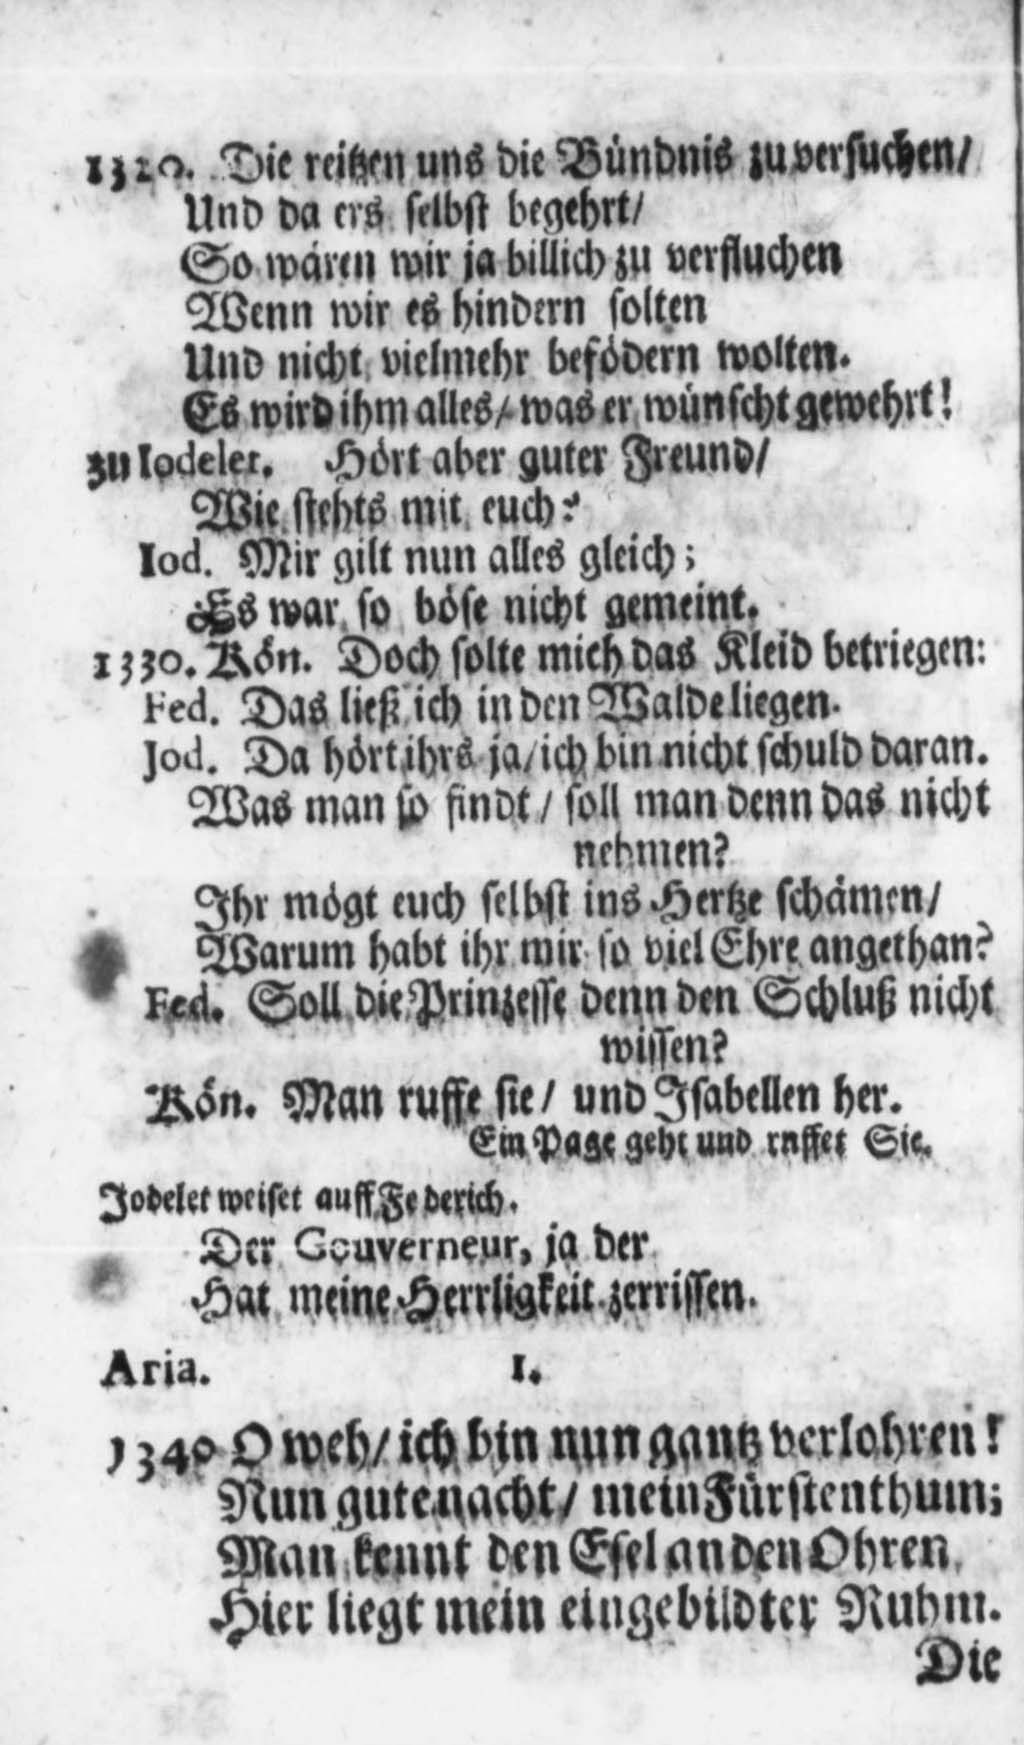 1320. Die reitzen uns die Bündnis zu versuchen/
Und da ers selbst begehrt/
So wären wir ja billich zu verfluchen
Wenn wir es hindern solten
Und nicht vielmehr befödern wolten.
Es wird ihm alles/ was er wünscht gewehrt!
zu Iodelet. Hört aber guter Freund/
Wie stehts mit euch?
Iod. Mir gilt nun alles gleich;
Es war so böse nicht gemeint.
1330. Kön. Doch solte mich das Kleid betriegen:
Fed. Das ließ ich in den Walde liegen.
Jod. Da hört ihrs ja/ ich bin nicht schuld daran.
Was man so findt/ soll man denn das nicht
nehmen?
Ihr mögt euch selbst ins Hertze schämen/
Warum habt ihr mir so viel Ehre angethan?
Fed. Soll die Prinzesse denn den Schluß nicht
wissen?
Kön. Man ruffe sie/ und Isabellen her.
Ein Page geht und ruffet Sie.
Jodelet weiset auff Federich.
Der Gouverneur, ja der
Hat meine Herrligkeit zerrissen.
Aria. 1.
1340 O weh/ ich bin nun gantz verlohren!
Nun gute nacht/ mein Fürstenthum;
Man kennt den Esel an den Ohren
Hier liegt mein eingebildter Ruhm.
Die